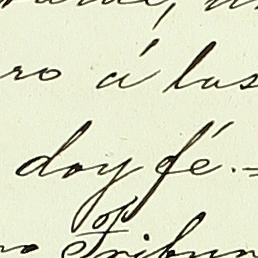 ro á las
doy fé.-
Tribun